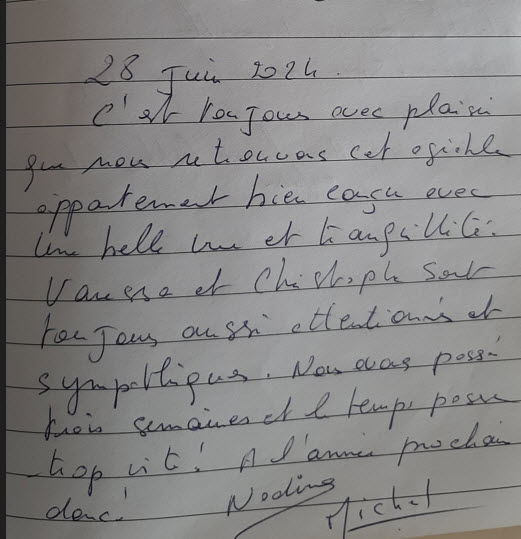 28 Juin 2024.
C'est toujours avec plaisir
que nous retrouvons cet agréable
appartement bien conçu avec
une belle vue et tranquillité.
Vanessa et Christophe sont
toujours aussi attentionnés et
sympathiques. Nous avons passé
trois semaines et le temps passe
trop vite! A l'année prochain
donc!
Nadine Michel